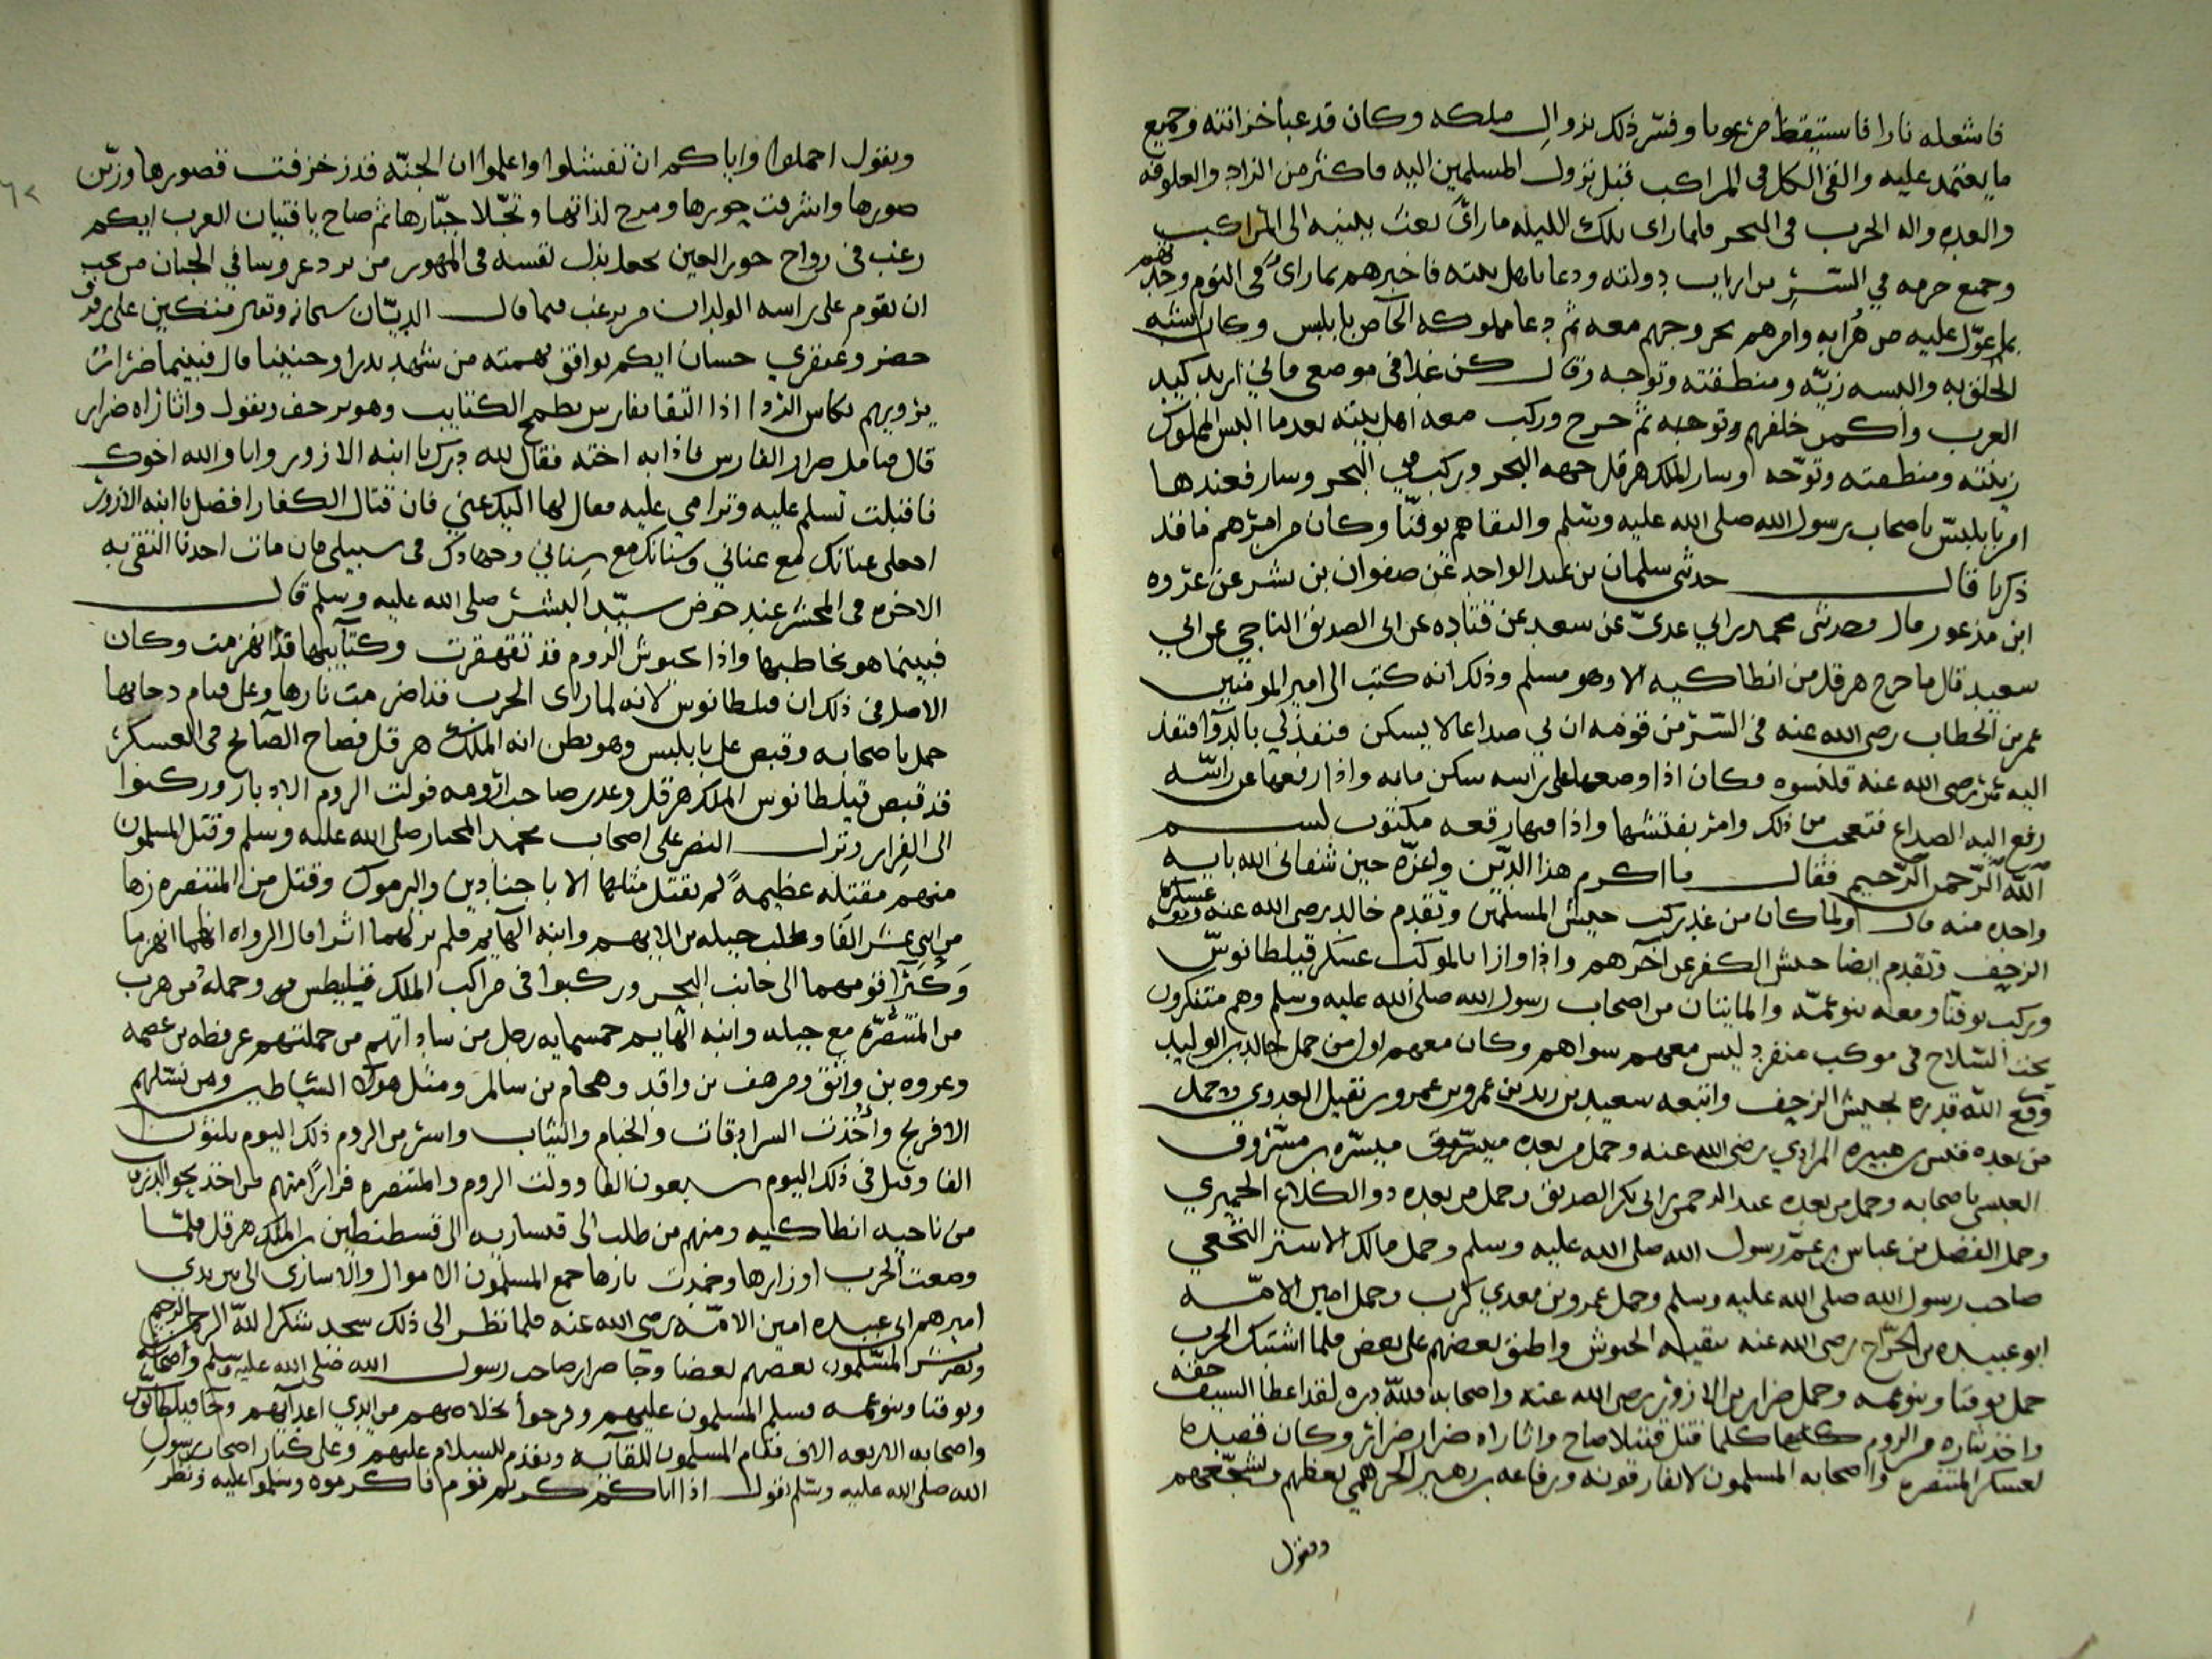 فاشعله نارا فاستيقظ مرعوبا وفسّر ذلك بزوال ملكه وكان قد عبا خزانته وجميع
ما يعتمد عليه والقى الكل في المراكب قبل نزول المسلمين اليه فاكثر من الزاد والعلوفه
والعده واله الحرب في البحر فلما راى تلك الليله ما راى بعث ببنيه الى المراكب
وجميع حرمه في السّر من ارباب دولته ودعا باهل بيته فاخبرهم بما راى في النوم وحدثهم
بما عوّل عليه من هرابه وامرهم بخروجهم معه ثم دعا مملوكه الخاص باليس وكان اشبه
الخلق به والبسه زيّه ومنطقته وتوّجه وقال كن غدا في موضعي فاني اريد كيد
العرب واكمن خلفهم وتوجه ثم خرج وركب معه اهل بيته بعدما البس المملوك
زينته ومنطقته وتوّجه وسار الملك هرقل جهه البحر وركب في البحر وسار فعندها
امر باليس باصحاب رسول الله صلى الله عليه وسلم والتقاهم يوقنّا وكان من امرهم ما قد
ذكرنا قال حدثني سلمان بن عبد الواحد عن صفوان بن بشر عن عروه
ابن مذعور قال وحدثني محمد بن ابي عديّ عن سعيد عن قتاده عن ابي الصديق الناجي عن ابي
سعيد قال ما خرج هرقل من انطاكيه الا وهو مسلم وذلك انه كتب الى امير المومنين
عمر بن الخطاب رضي الله عنه في السّر من قومه ان بي صداعا لا يسكن فنفذ لي بالدوآ فنفذ
اليه عمر رضي الله عنه قلنسوه فكان اذا وضعها على راسه سكن ما به واذا رفعها عن راسّه
رفع اليه الصداع فتعجب من ذلك وامر بفتشها واذا فيها رقعه مكتوب بسم
الله الرّحمن الرّحيم فقال ما اكرم هذا الدّين واعزّه حين شفاني الله بايه
واحده منه قال ولما كان من غد ركب جيش المسلمين وتقدم خالد رضي الله عنه عسكر
الزحف وتقدم ايضا جيش الكفر عن اخرهم واذا وازا بالموكب عسكر قيلطانوسّ
وركب يوقنّا ومعه بنو عمّه والمايتان من اصحاب رسول الله صلى الله عليه وسلم وهم متنكرون
تحت السّلاح في موكب منفرد ليس معهم سواهم وكان معهم اول من حمل خالد بن الوليد
وقع الله قدره بجيش الزحف واتبعه سعيد بن زيد بن عمرو بن نفيل العدوي وحمل
من بعده قيس بن هبيره المرادي رضي الله عنه وحمل من بعده ميسّره بن مسّروق
العبسي باصحابه وحمل من بعده عبد الرحمن بن ابي بكر الصديق وحمل من بعده ذو الكلاع الحميري
وحمل الفضل بن عباس بن عمّ رسول الله صلى الله عليه وسلم وحمل مالك الاشتر النخعي
صاحب رسول الله صلى الله عليه وسلم وحمل عمرو بن معدي كرب وحمل امين الامّه
ابو عبيده بن الجرّاح رضي الله عنه ببقيه الجيوش واطبق بعضهم على بعض فلما اشتبك الحرب
حمل يوقنا وبنو عمه وحمل ضرار بن الازور رضي الله عنه واصحابه فللّه دره لقد اعطا السيف حقه
واخذ بثاره من الروم كلما قتل قتيلا صاح واثاراه ضرار ضراير وكان قصيده
لعسكر المتنصره واصحابه المسلمون لا يفارقونه ورفاعه بن زهير الجرهمي يعظهم ويشجّعهم
ويقول
ويقول احملوا واياكم ان تفشلوا واعلموا ان الجنّه قد زخرفت قصورها وزيّن
صورها واشرقت حورها ومدح لذاتها وتجّلا جبّارها ثم صاح يا فتيان العرب ايكم
رغب في زواج حور العين بحمل بذل نفسه في المهور من يرد عروسا في الجنان من يحب
ان يقوم على راسه الولدان من يرغب فيما قال الديّان سبحانه وتعالى متكين على رفرف
خضر وعبقري حسان ايكم يوافق بهمته من شهد بدرا وحنينا قال فبينما ضرار
يرويهم بكاس الردا اذا التقا بفارس يطمح الكتايب وهو يزحف ويقول واثاراه ضرار
قال فتامل ضرار الفارس فاذا به اخته فقال لله درك يا ابنه الازور وانا والله اخوك
فاقبلت تسلم عليه وترامي عليه فقال لها اليك عني فان قتال الكفار افضل يا ابنه الازور
اجعلي عنانك مع عناني وسنانك مع سناني وجهادك في سبيلي فان مات احدنا التقى به
الاخر في المحشر عند حوض سيّد البشر صلى الله عليه وسلم قال
فبينما هو يخاطبها واذا بجيوش الروم قد تقهقرت وكتايبها قد انهزمت وكان
الاصل في ذلك ان قيلطانوس لانه لما راى الحرب قد اضرمت نارها وعلى قيام دخانها
حمل باصحابه وقبض على باليس وهو يظن انه الملك هرقل فصاح الصايح في العسكر
قد قبض قيلطانوس الملك هرقل وغدر صاحب رومه فولت الروم الادبار وركنوا
الى الفرار ونزل النصر على اصحاب محمد المختار صلى الله عليه وسلم وقتل المسلمون
منهم مقتله عظيمه لم يقتل مثلها الا باجنادين واليرموك وقتل من المتنصره زها
من اثني عشر الفا وطلب جبله بن الايهم وابنه الهايم فلم ير لهما اثرا قال الرواه انهما انهزما
وكبرآ قومهما الى جانب البحر وركبوا في مراكب الملك وحمله من هرب
من المتنصّره مع جبله وابنه الهايم خمسمايه رجل من ساداتهم من جملتهم عرفطه بن عصمه
وعروه بن واثق ومرهف بن واقد وهجام بن سالم ومثل هولآ الشياطين ومن نسّلهم
الافرنج وأخذت السرادقات والخيام والثياب واسر من الروم ذلك اليوم ثلثون
الفا وقتل في ذلك اليوم سبعون الفا وولت الروم والمتنصره فرارًا منهم من اخذ نحو الدرب
من ناحيه انطاكيه ومنهم من طلب الى قيساريه الى قسطنطين بن الملك هرقل فلمّا
وضعت الحرب اوزارها وخمدت نارها جمع المسلمون الاموال والاسارى الى بين يدي
اميرهم ابي عبيده امين الامّه رضي الله عنه فلما نظر الى ذلك سجد شكرا للّه الرحمن الرحيم
وبشر المسّلمون بعضهم بعضا وجا ضرار صاحب رسول الله صلى الله عليه وسلم واصحابه
ويوقنا وبنو عمه فسلم المسلمون عليهم وفرحوا بخلاصهم من ايدي اعدآيهم وجا قيلطانوس
واصحابه الاربعه الاف فقام المسلمون للقآيه وتقدم للسلام عليهم وعلى كبار اصحاب رسول
الله صلى الله عليه وسلم يقول اذا اتاكم كريم قوم فاكرموه وسلموا عليه ونظر